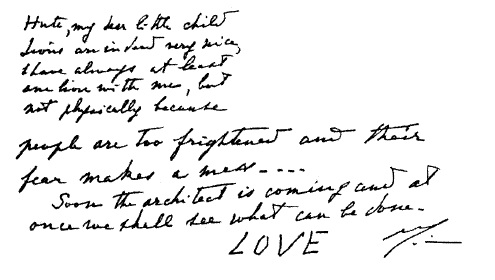 Hute, my dear little child
Lions are indeed very nice,
I have always at least
one lion with me, but
not physically because
people are too frightened and their
fear makes a mess ----
Soon the architect is coming and at
once we shall see what can be done.
LOVE